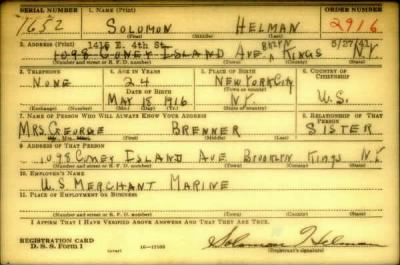 SERIAL NUMBER 1. NAME (Print) ORDER NUMBER
1652 SOLOMON HELMAN 2916
1415 E. 4th St. BKLYN 5/27/41
2. ADDRESS (Print)
1098 CONEY ISLAND AVE. KINGS N.Y.
(Number and street or R. F. D. number) (Town) (County) (State)
3. TELEPHONE 4. AGE IN YEARS 5. PLACE OF BIRTH 6. COUNTRY OF CITIZENSHIP
NONE 24 NEW YORK CITY
DATE OF BIRTH (Town or county)
MAY 18 1916 N.Y. U.S.
(Exchange) (Number) (Mo.) (Day) (Yr.) (State or country)
7. NAME OF PERSON WHO WILL ALWAYS KNOW YOUR ADDRESS 8. RELATIONSHIP OF THAT PERSON
MRS. GEORGE BRENNER SISTER
(Mr., Mrs., Miss) (First) (Middle) (Last)
9. ADDRESS OF THAT PERSON
1098 CONEY ISLAND AVE BROOKLYN KINGS N.Y.
(Number and street or R. F. D. number) (Town) (County) (State)
10. EMPLOYER'S NAME
U.S. MERCHANT MARINE
11. PLACE OF EMPLOYMENT OR BUSINESS
(Number and street or R. F. D. number) (Town) (County) (State)
I AFFIRM THAT I HAVE VERIFIED ABOVE ANSWERS AND THAT THEY ARE TRUE.
REGISTRATION CARD
D. S. S. FORM 1 16—17105 Solomon Helman
(Registrant's signature)